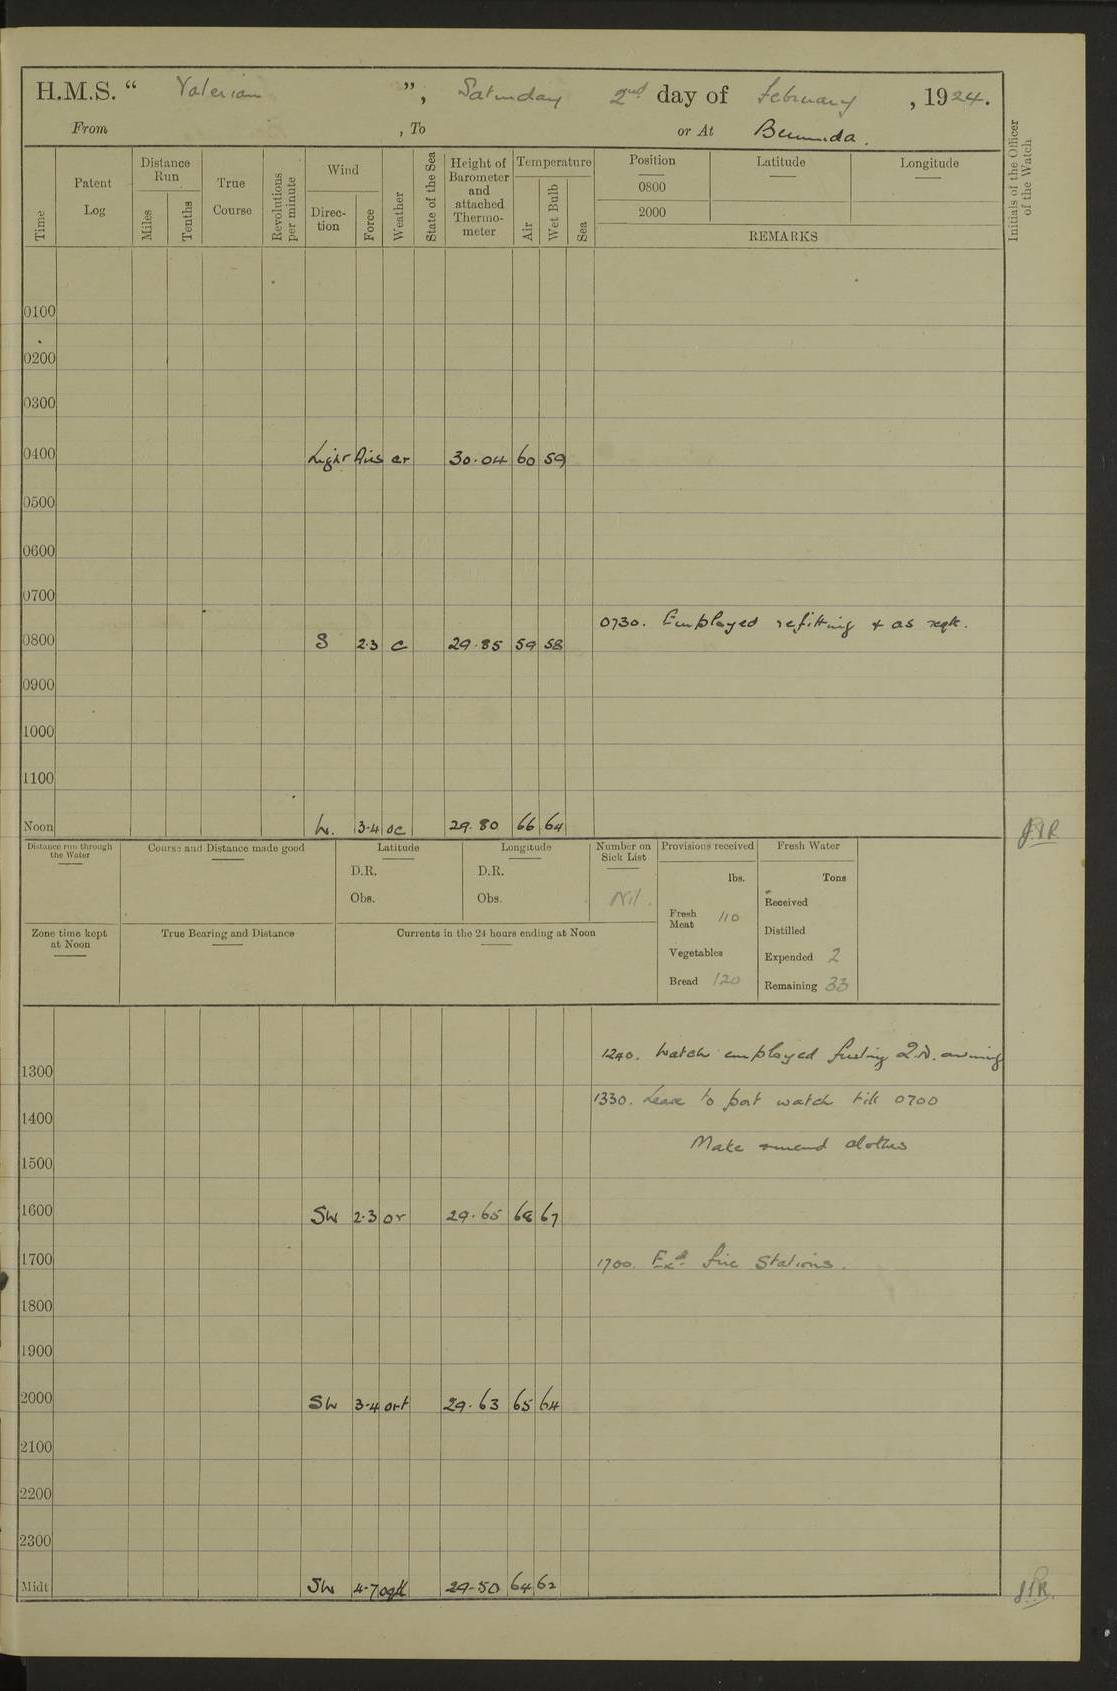 H.M.S. “ Valerian ”, Saturday 2nd day of February, 1924.
From , To or At Bermuda.
Time
Patent Log
Distance Run
Miles
Tenths
True Course
Revolutions per minute
Wind
Direc-tion
Force
Weather
State of the Sea
Height of Barometer and attached Thermo-meter
Temperature
Air
Wet Bulb
Sea
Position Latitude Longitude
0800
2000
REMARKS
Initials of the Officer of the Watch
0100
0200
0300
0400 Light Airs cr 30.04 60 59
0500
0600
0700
0730. Employed refitting & as reqte.
0800 S 2.3 c 29.85 59 58
0900
1000
1100
Noon W. 3-4 oc 29.80 66 64
Distance run through the Water
Course and Distance made good
Latitude
D.R.
Obs.
Longitude
D.R.
Obs.
Number on Sick List
Nil.
Provisions received
lbs.
Fresh Meat 110
Vegetables
Bread 120
Fresh Water
Tons
Received
Distilled
Expended 2
Remaining 33
Zone time kept at Noon
True Bearing and Distance
Currents in the 24 hours ending at Noon
1240. Watch employed furling Q.D. awning
1300
1330. Leave to port watch till 0700
1400
Make & mend clothes
1500
1600 SW 2.3 or 29.65 68 67
1700 1700. Exd fire Stations.
1800
1900
2000 SW 3-4 ort 29.63 65 64
2100
2200
2300
Midt SW 4-7 29-50 64 62